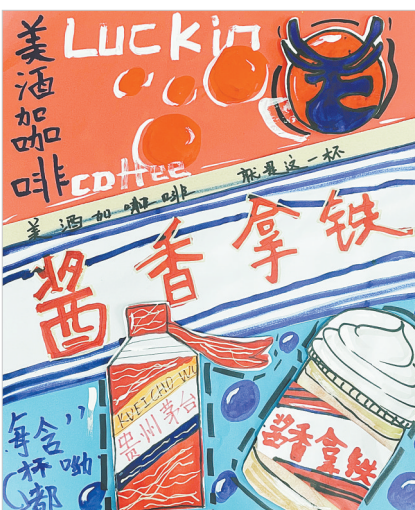 美酒加咖啡
Luckin
coffee
美酒加咖啡 就是这一杯
酱香拿铁
KVEICHO WU
贵州茅台
酱香拿铁
每含
杯呦
都